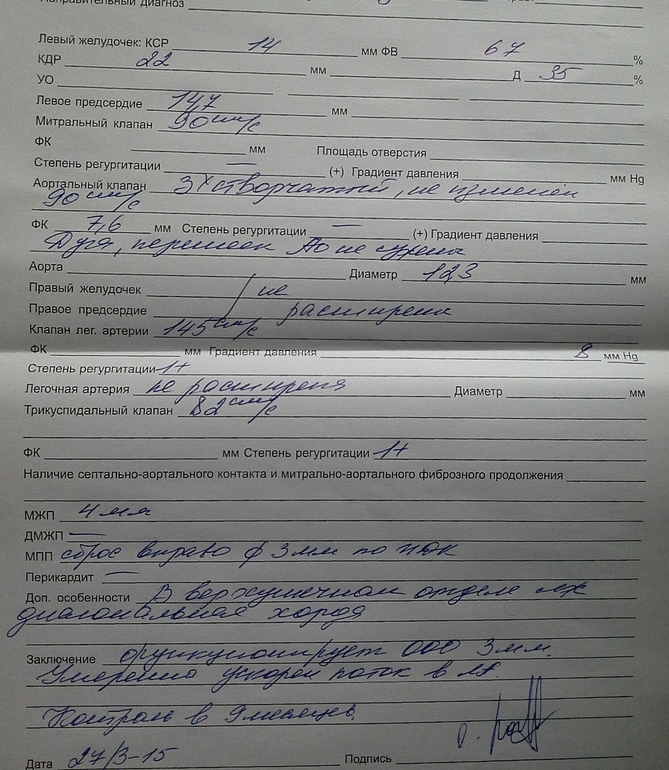 Направительный диагноз
Левый желудочек: КСР 14 мм ФВ 67 %
КДР 22 мм Д 35 %
УО
Левое предсердие 14,7 мм
Митральный клапан 90 см/с
ФК мм Площадь отверстия
Степень регургитации — (+) Градиент давления мм Hg
Аортальный клапан 3х створчатый, не изменен
90 см/с
ФК 7,6 мм Степень регургитации — (+) Градиент давления
Дуга, перешеек Ао не сужены
Аорта Диаметр 12,3 мм
Правый желудочек не
Правое предсердие расширены
Клапан лег. артерии 145 см/с
ФК мм Градиент давления 8 мм Hg
Степень регургитации 1+
Легочная артерия не расширена Диаметр мм
Трикуспидальный клапан 82 см/с
ФК мм Степень регургитации 1+
Наличие септально-аортального контакта и митрально-аортального фиброзного продолжения
МЖП 4 мм
ДМЖП —
МПП сброс вправо ф 3 мм по ЦДК
Перикардит —
Доп. особенности В верхушечном отделе лж
диагональная хорда
Заключение функционирует ООО 3 мм.
Умеренно ускорен поток в ЛА.
Контроль в 9 месяцев.
Дата 27/3-15 Подпись